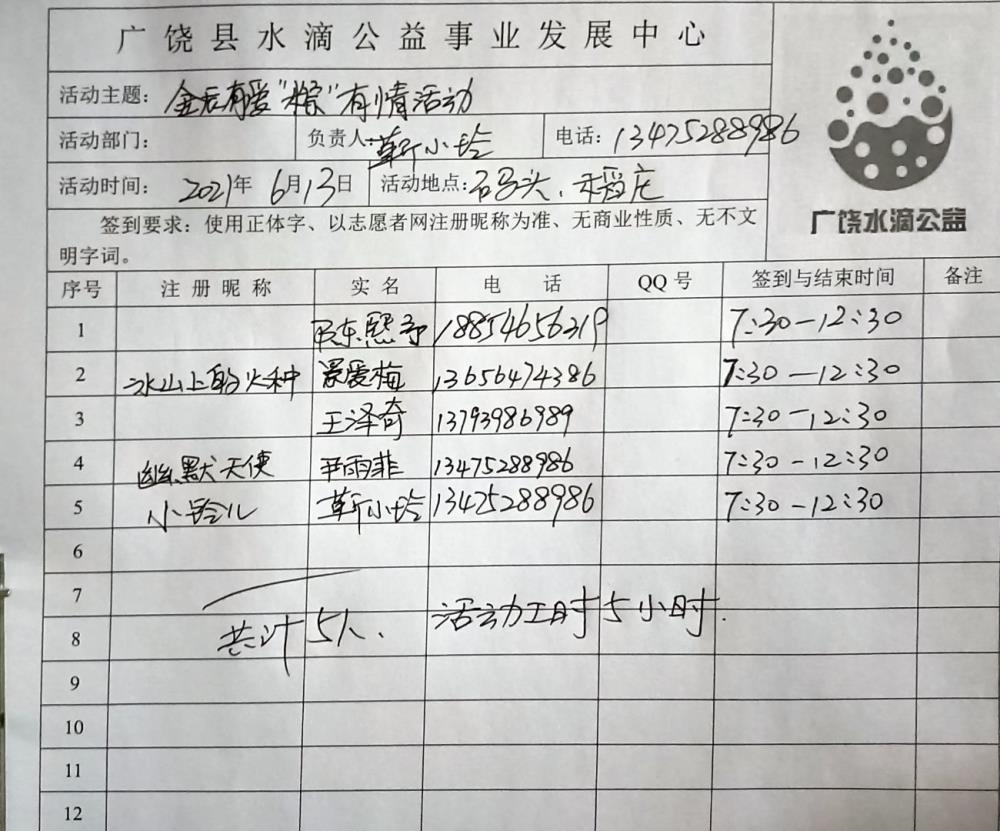 广饶县水滴公益事业发展中心
活动主题：金石有爱“粽”有情活动
活动部门： 负责人：靳小玲 电话：13475288986
活动时间：2021年6月13日 活动地点：石码头、
签到要求：使用正体字、以志愿者网注册昵称为准、无商业性质、无不文
明字词。
广饶水滴公益
序号 注册昵称 实名 电话 QQ号 签到与结束时间 备注
1 18854656219 7:30-12:30
2 冰山上的火种 爱梅 13656474386 7:30-12:30
3 王泽奇 13793986989 7:30-12:30
4 幽默天使 尹雨菲 13475288986 7:30-12:30
5 小玲儿 靳小玲 13475288986 7:30-12:30
6
7
8 共计5人、 活动工时5小时.
9
10
11
12